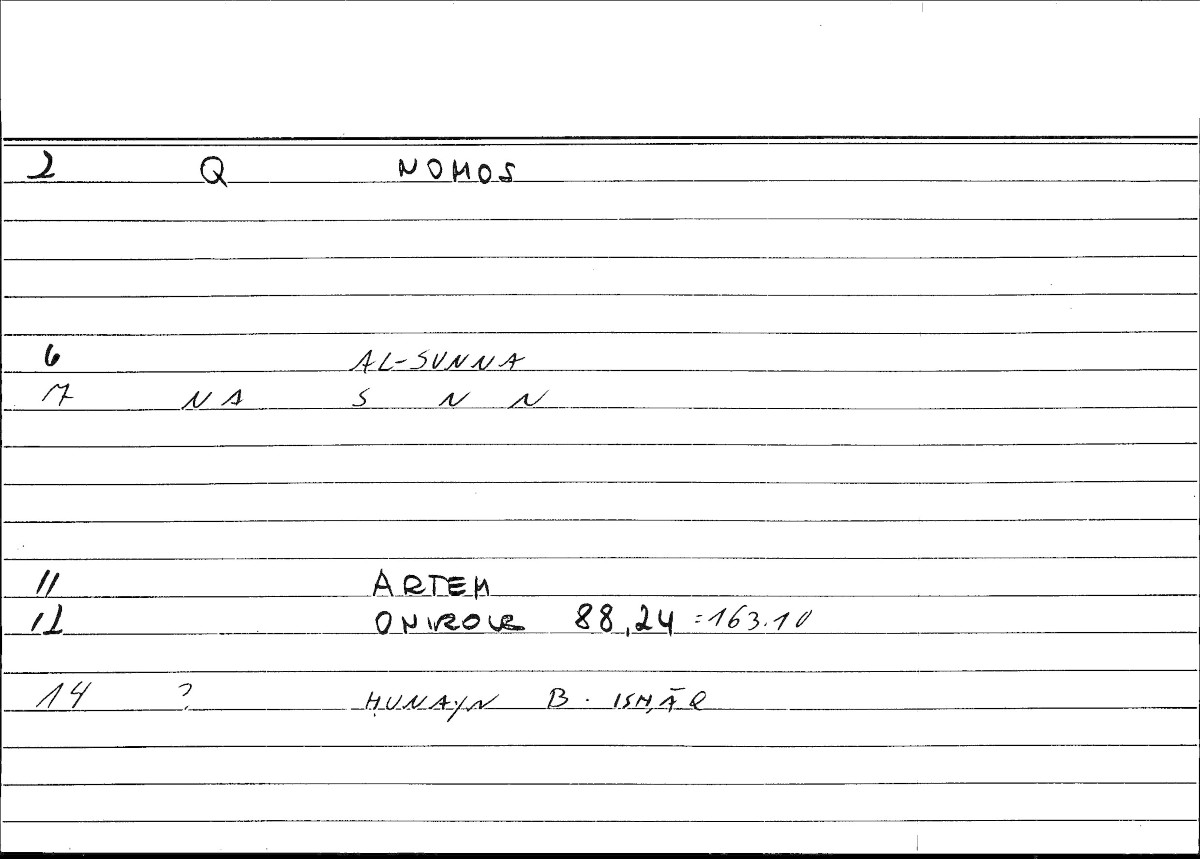 2 Q NOMOS
6 AL-SUNNA
7 NA S N N
11 ARTEM
12 ONIROCR 88,24 =163.10
14 ? ḤUNAYN B. ISḤĀQ